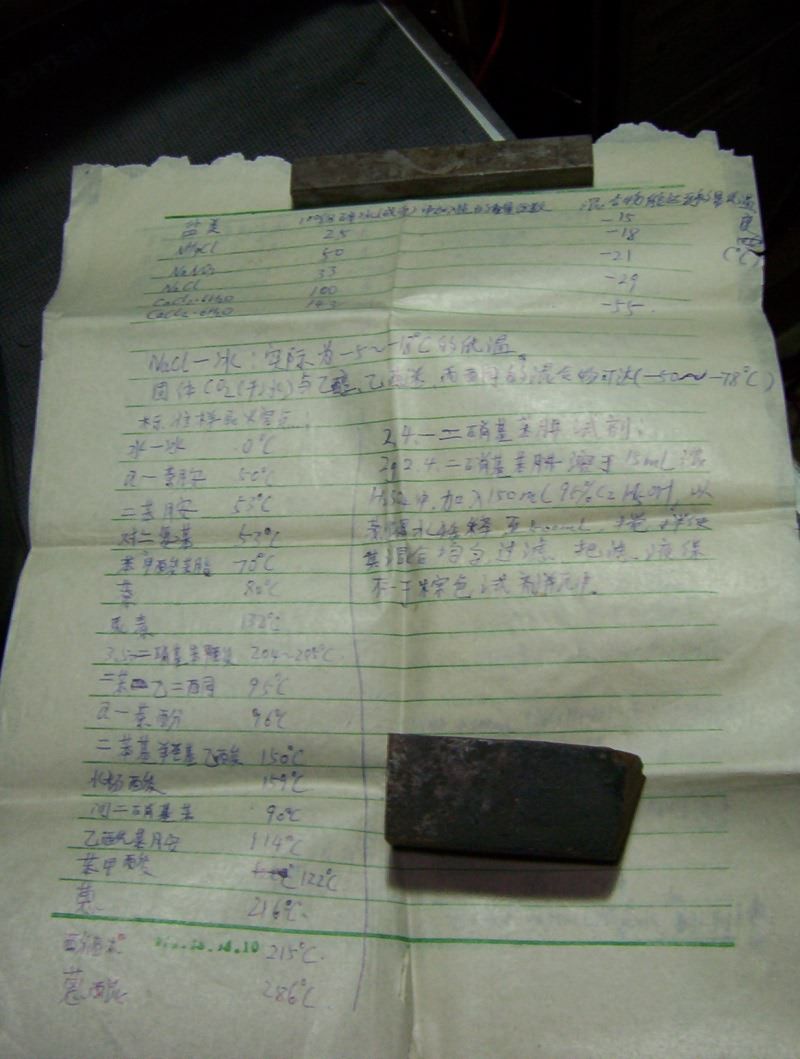 盐类 100份碎冰(或雪)中加入盐的质量份数 混合物能达到的最低温度(°C)
NH4Cl 25 -15
NaNO3 50 -18
NaCl 33 -21
CaCl2·6H2O 100 -29
CaCl2·6H2O 143 -55
NaCl—冰:实际为-5~-18°C的低温。
固体CO2(干冰)与乙醇、乙醚、丙酮的混合物可达(-50~-78°C)
标准样品
水—冰 0°C
α—萘胺 50°C
二苯胺 53°C
对二氯苯 53°C
苯甲酸苯酯 70°C
萘 80°C
尿素 132°C
3,5—二硝基苯甲酸 204~205°C
二苯乙二酮 95°C
α—萘酚 96°C
二苯基羟基乙酸 150°C
水杨酸 159°C
间二硝基苯 90°C
乙酰苯胺 114°C
苯甲酸 122°C
蒽 216°C
酚酞 215°C
蒽醌 286°C
2,4—二硝基苯肼试剂:
2g 2,4—二硝基苯肼溶于15mL浓
H2SO4中,加入150mL 95%C2H5OH,以
蒸馏水稀释至500mL,搅拌使
其混合均匀,过滤,把滤液保
存于棕色试剂瓶中。